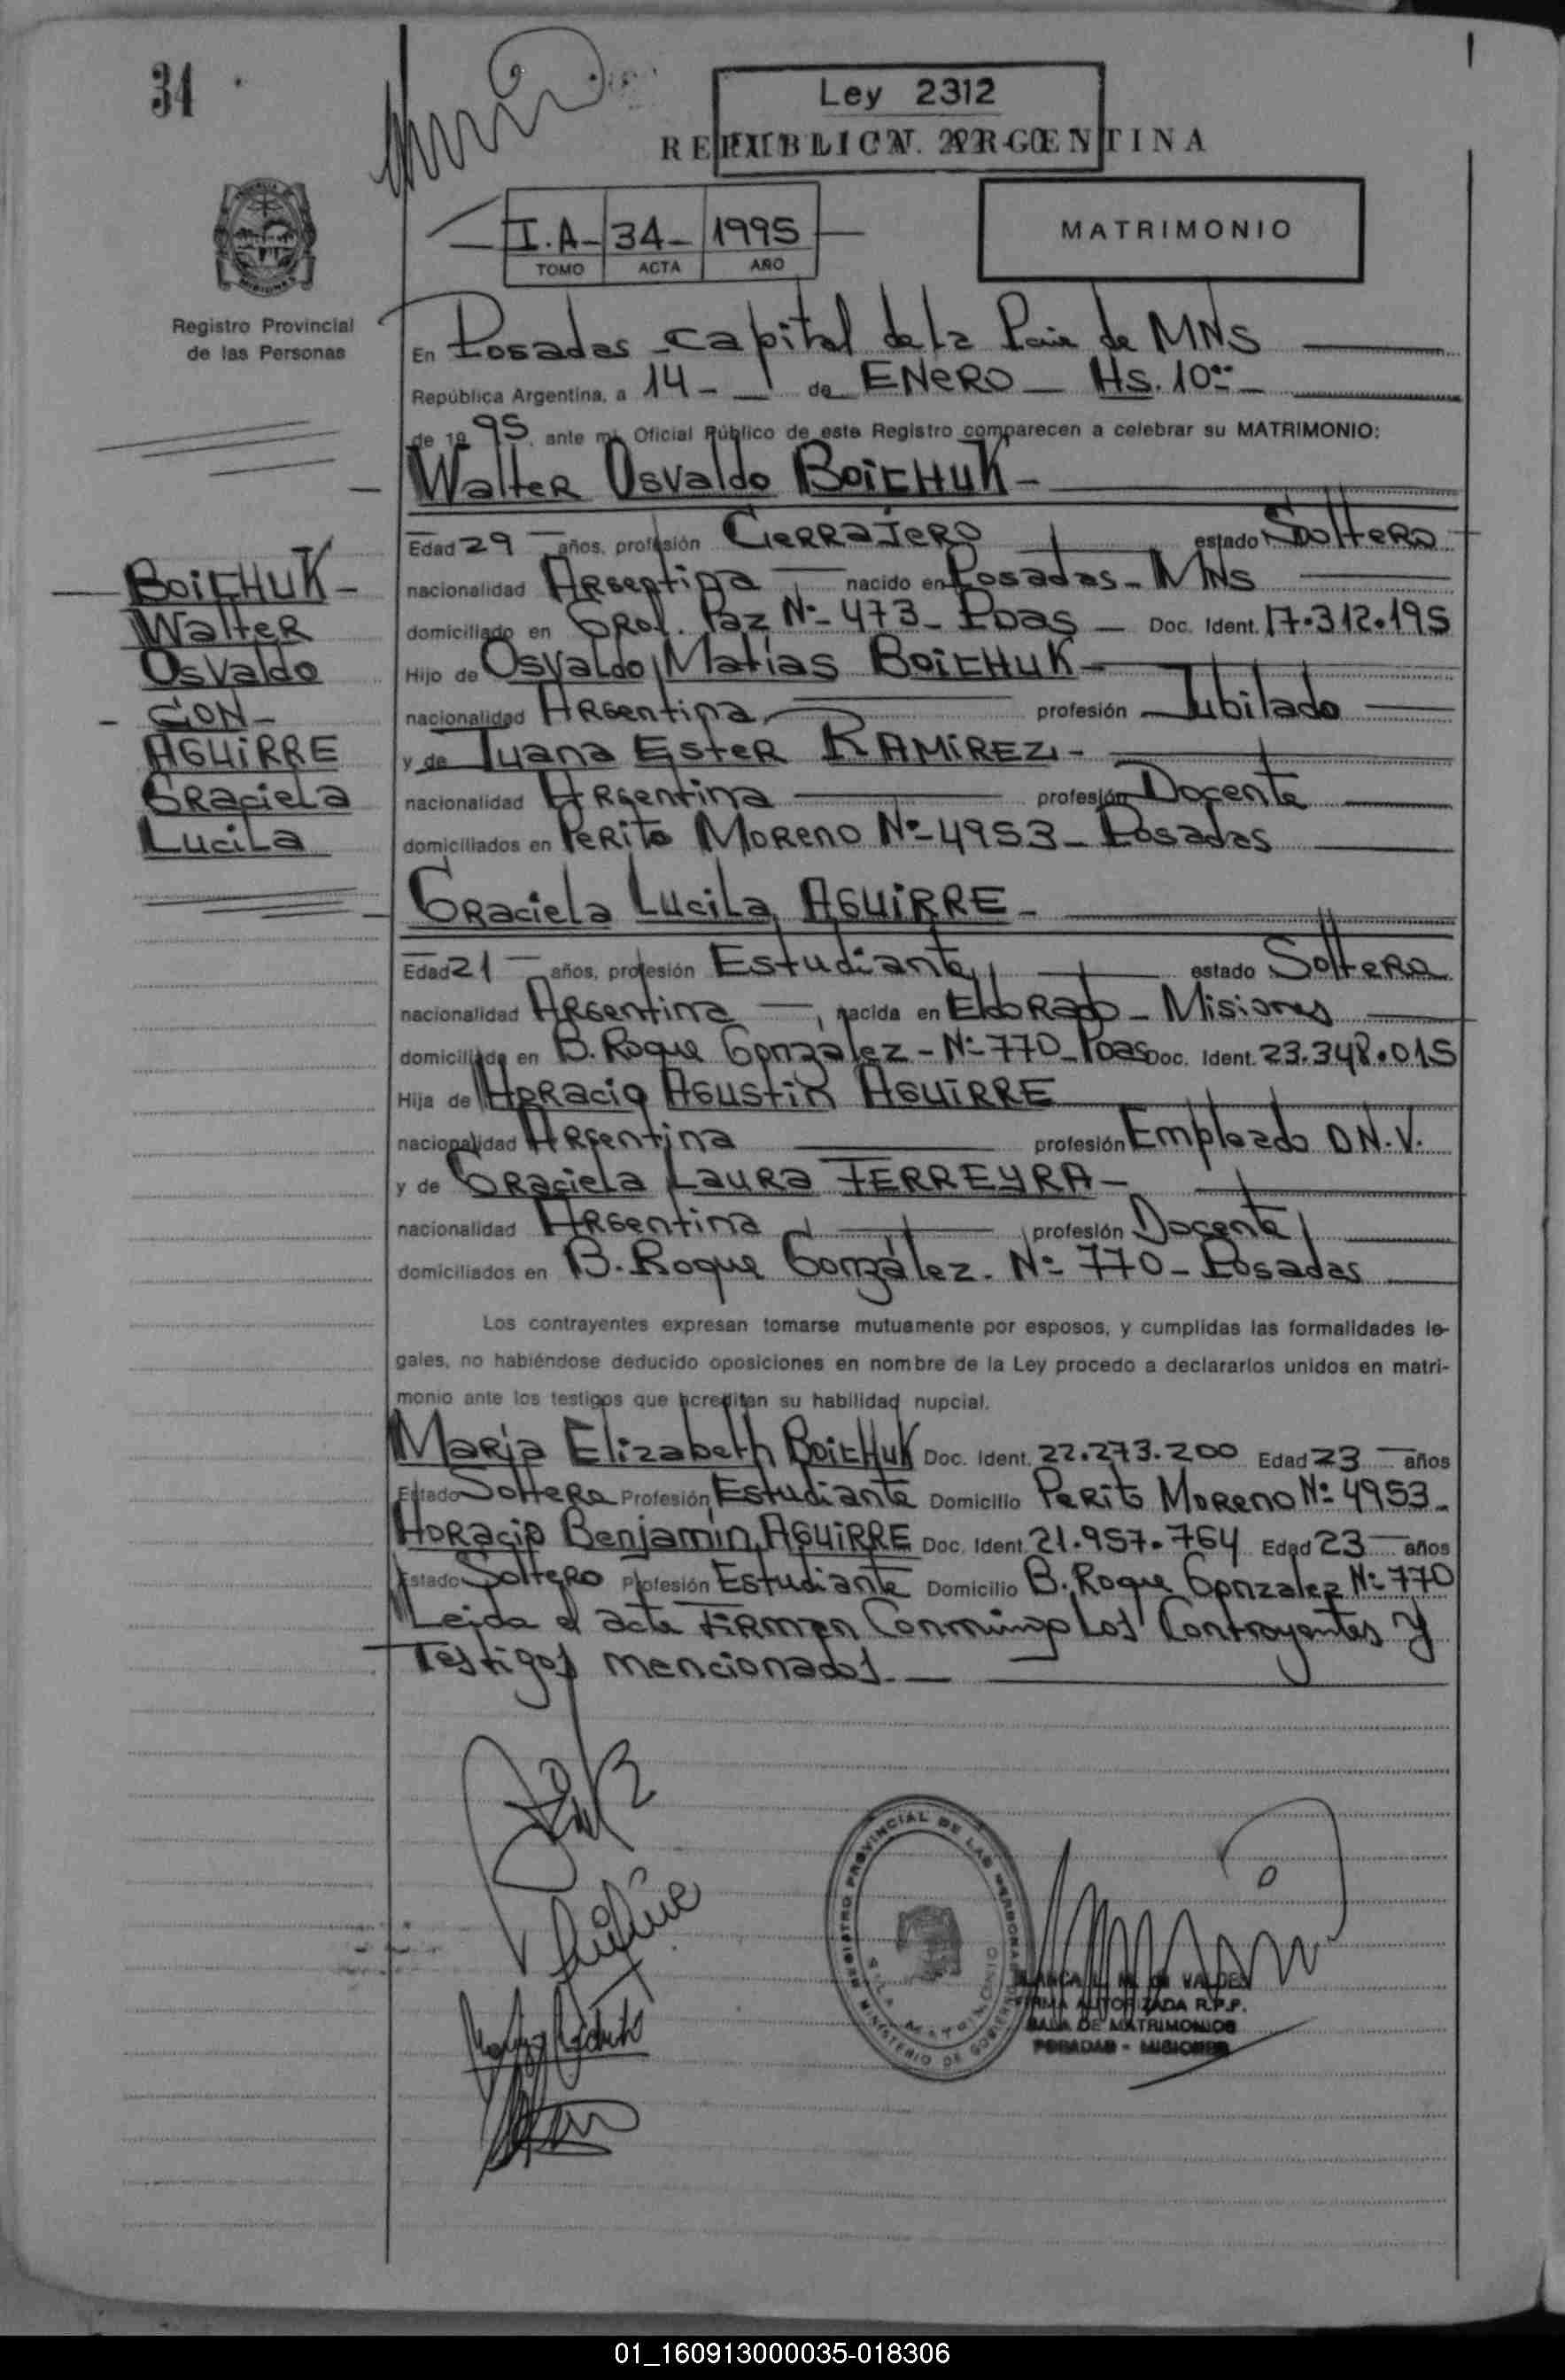 34
Ley 2312
REPUBLICA ARGENTINA
I.A- 34- 1995
TOMO ACTA AÑO
MATRIMONIO
Registro Provincial
de las Personas
En Posadas - Capital de la de MNS
República Argentina, a 14 - de ENERO - Hs. 10
de 1995, ante mi, Oficial Público de este Registro comparecen a celebrar su MATRIMONIO:
Walter Osvaldo BOICHUK -
Edad 29 años, profesión Cerrajero estado Soltero
nacionalidad Argentina nacido en Posadas - MNS
domiciliado en Gral. Paz Nº 473 - Pdas - Doc. Ident. 17.312.195
Hijo de Osvaldo Matías BOICHUK -
nacionalidad Argentina profesión Jubilado
y de Juana Ester RAMIREZ -
nacionalidad Argentina profesión Docente
domiciliados en Perito Moreno Nº 4953 - Posadas
BOICHUK -
Walter
Osvaldo
- CON -
AGUIRRE
Graciela
Lucila
Graciela Lucila AGUIRRE -
Edad 21 años, profesión Estudiante estado Soltera
nacionalidad Argentina, nacida en Eldorado - Misiones
domiciliada en B. Roque Gonzalez - Nº 770 - Pdas Doc. Ident. 23.348.015
Hija de Horacio Agustin AGUIRRE
nacionalidad Argentina profesión Empleado D.N.V.
y de Graciela Laura FERREYRA -
nacionalidad Argentina profesión Docente
domiciliados en B. Roque González - Nº 770 - Posadas
Los contrayentes expresan tomarse mutuamente por esposos, y cumplidas las formalidades le-
gales, no habiéndose deducido oposiciones en nombre de la Ley procedo a declararlos unidos en matri-
monio ante los testigos que acreditan su habilidad nupcial.
Maria Elizabeth BOICHUK Doc. Ident. 22.273.200 Edad 23 años
Estado Soltera Profesión Estudiante Domicilio Perito Moreno Nº 4953 -
Horacio Benjamin AGUIRRE Doc. Ident. 21.957.764 Edad 23 años
Estado Soltero Profesión Estudiante Domicilio B. Roque Gonzalez Nº 770
Leida el acta Firman Conmigo Los Contrayentes y
Testigos mencionados. -
REGISTRO PROVINCIAL DE LAS PERSONAS
SALA MATRIMONIO
MINISTERIO DE GOBIERNO
BLANCA VALDES
FIRMA AUTORIZADA R.P.P.
SALA DE MATRIMONIOS
POSADAS - MISIONES
01_160913000035-018306